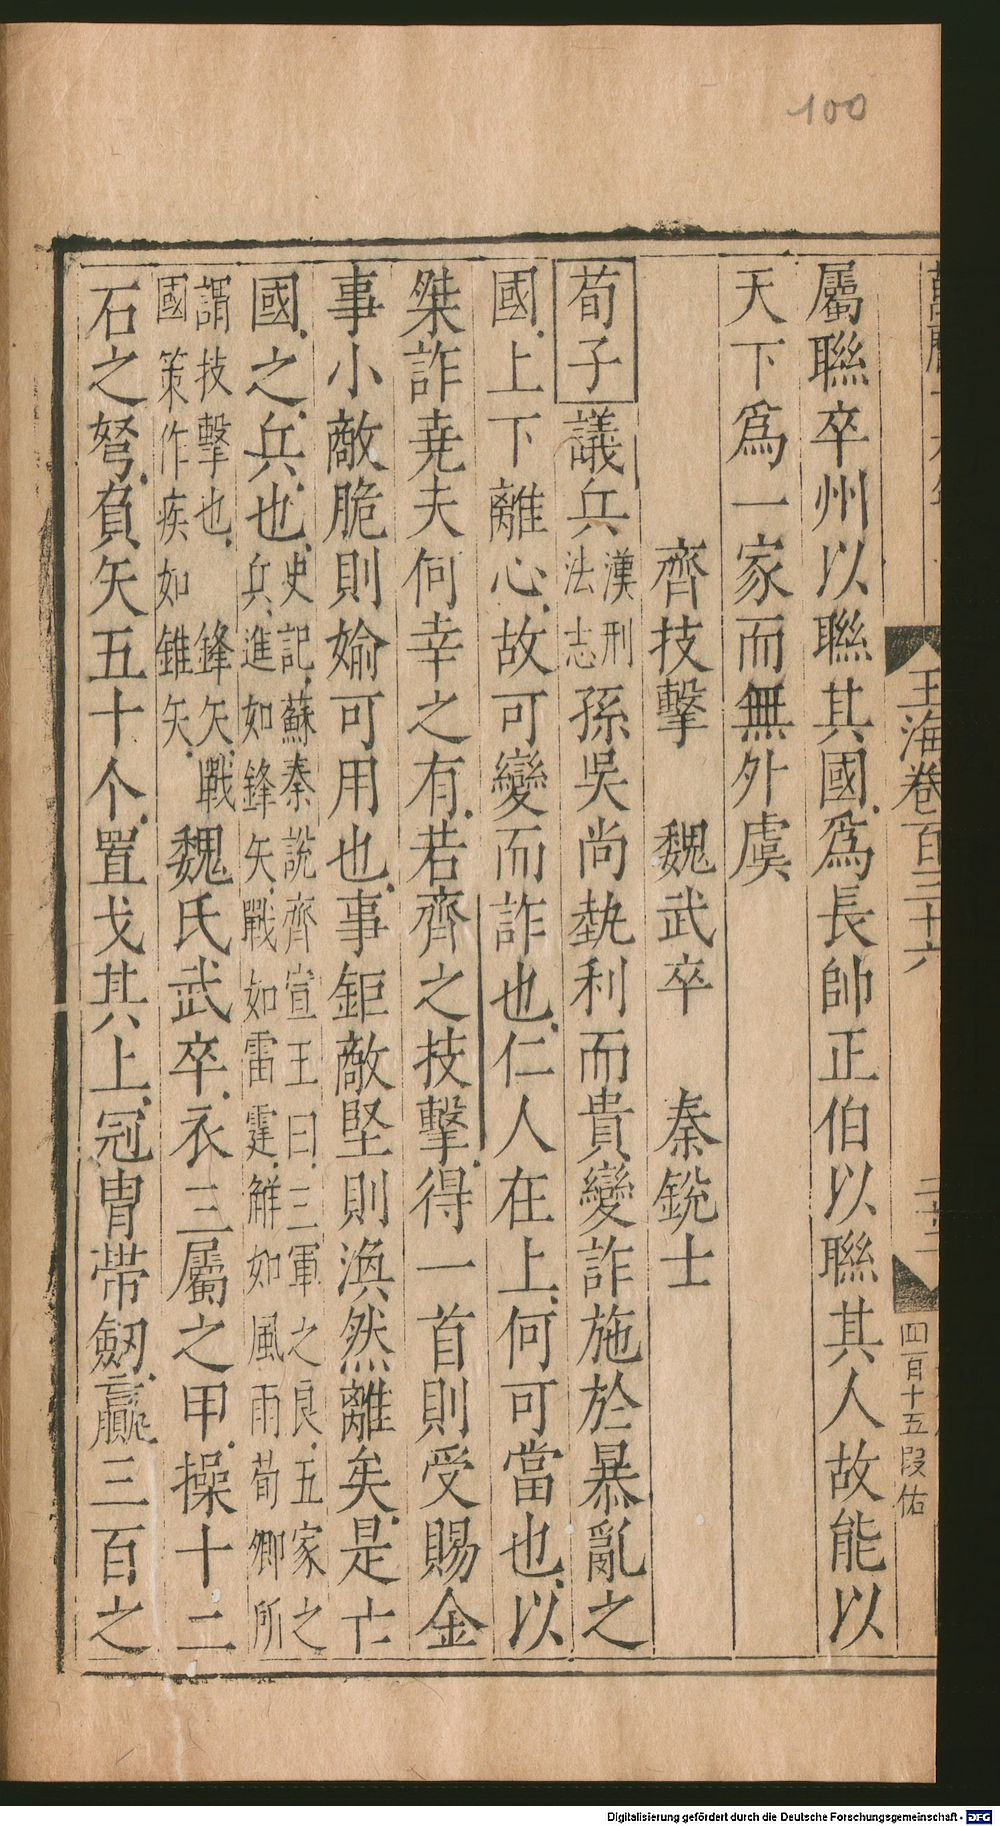 100
玉海卷百三十六
四百十五段佑
屬聯卒州以聯其國爲長帥正伯以聯其人故能以
天下爲一家而無外虞
齊技擊 魏武卒 秦銳士
荀子議兵漢刑法志孫吳尚埶利而貴變詐施於暴亂之
國上下離心故可變而詐也仁人在上何可當也以
桀詐堯夫何幸之有若齊之技擊得一首則受賜金
事小敵脆則媮可用也事鉅敵堅則渙然離矣是亡
國之兵也史記蘇秦說齊宣王曰三軍之良五家之兵進如鋒矢戰如雷霆解如風雨荀卿所
謂技擊也 鋒矢戰國策作疾如錐矢魏氏武卒衣三屬之甲操十二
石之弩負矢五十个置戈其上冠冑帶劒贏三百之
Digitalisierung gefördert durch die Deutsche Forschungsgemeinschaft - DFG